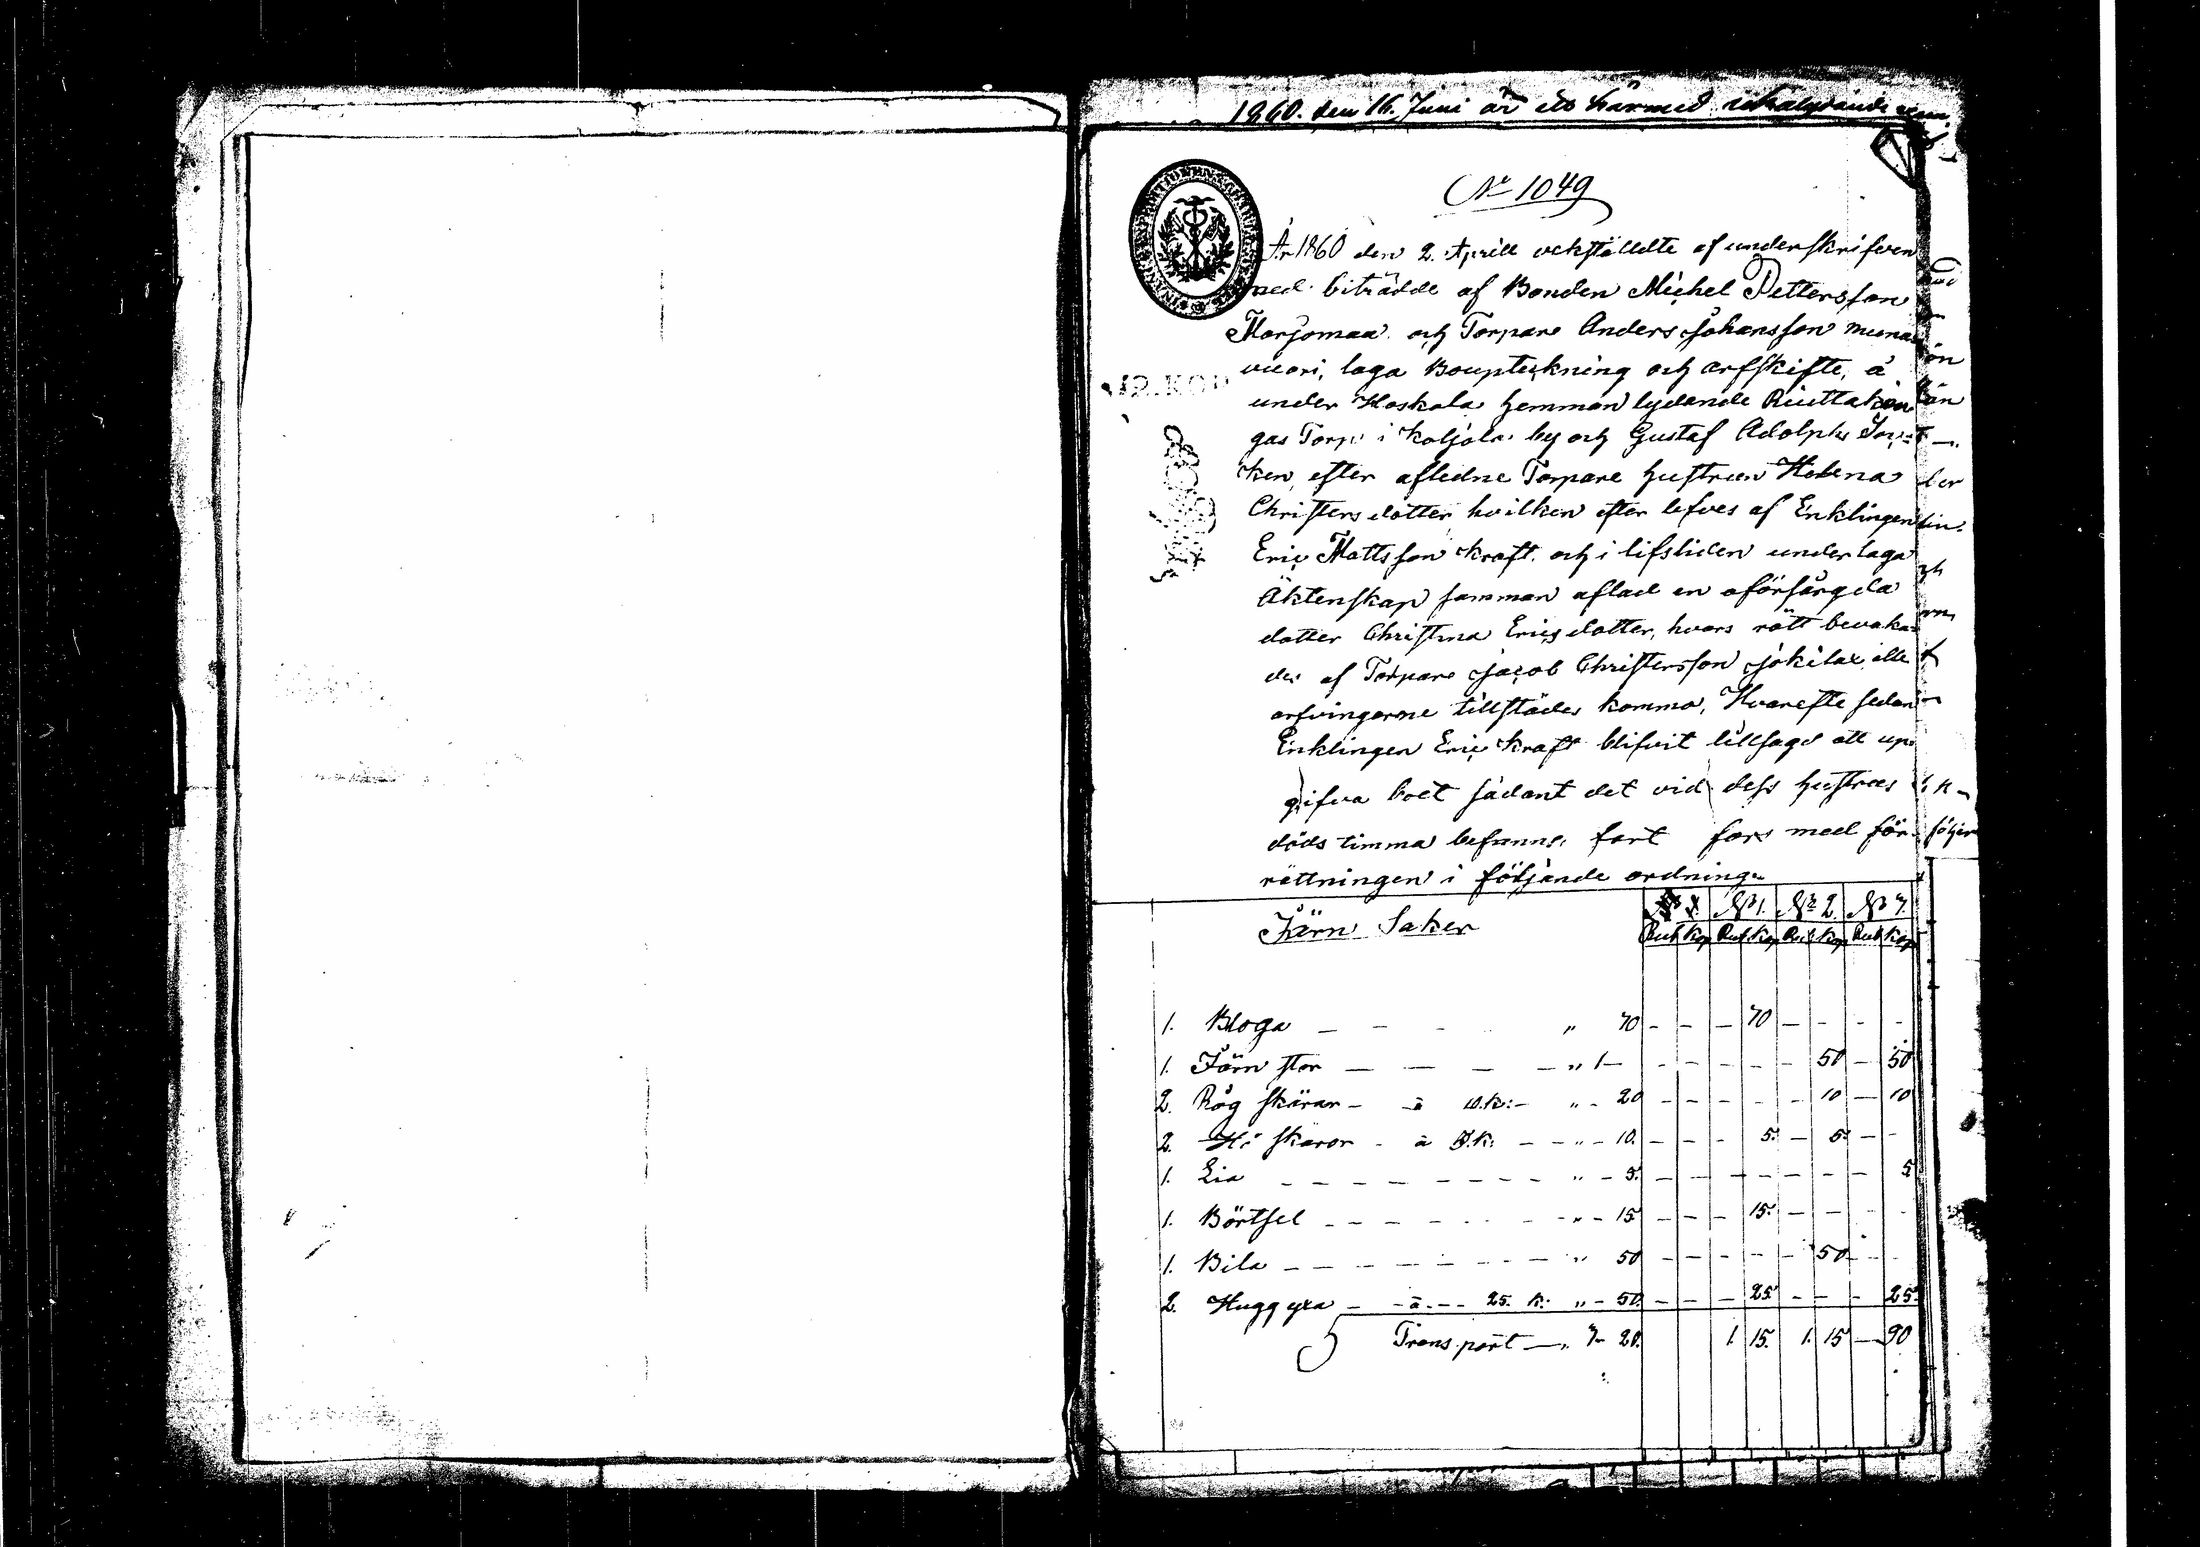 1860. den 16. Juni är ett härmed likalydande
№ 1049
År 1860 den 2. Aprill verkställdte af underskrifven
med biträdde af Bonden Michel Pettersson
Marjomaa och Torpare Anders Johansson muna
vuori, laga Boupteckning och arfskifte, å
under Haskala hemman lydande Riuttakan
gas Torp i Koljola by och Gustaf Adolphs Soc-
ken, efter afledne Torpare hustrun Helena
Christersdotter, hvilken efter lefves af Enklingen
Eric Mattsson Kraft och i lifstiden under laga
Äktenskap samman aflad en oförsårgda
dotter Christina Ericsdotter, hvars rätt bevaka-
des af Torpare Jacob Christersson Jokilax, alle
arfvingarne tillstädes komma, Hvarefte sedan
Enklingen Eric Kraft blifvit tillsagd att up-
gifva boet sådant det vid dess hustrus
döds timma befanns, fort fors med för-
rättningen i följande ordning.
Järn Saker № 1. № 2. № 3.
Rub Kop Rub Kop Rub Kop Rub Kop
1. Bloga — — — " 70 — — — 70 — — — —
1. Järn stor — — — — " 1 — — — — — — 50 — 50
2. Råg skäror — à 10. k: — " — 20 — — — — — 10 — 10
2. Hö skäror — à 5. k: — — " — 10. — — — 5. — 5. — —
1. Lia — — — — — — — " — 5. — — — — — — — 5
1. Börtsel — — — — — — " — 15 — — — 15. — — — —
1. Bila — — — — — — — " 50 — — — — — 50 — —
2. Huggyxa — — à — — 25. k: " — 50. — — — 25. — — — 25.
Transport — " 3 — 20. 1. 15. 1. 15 — 90